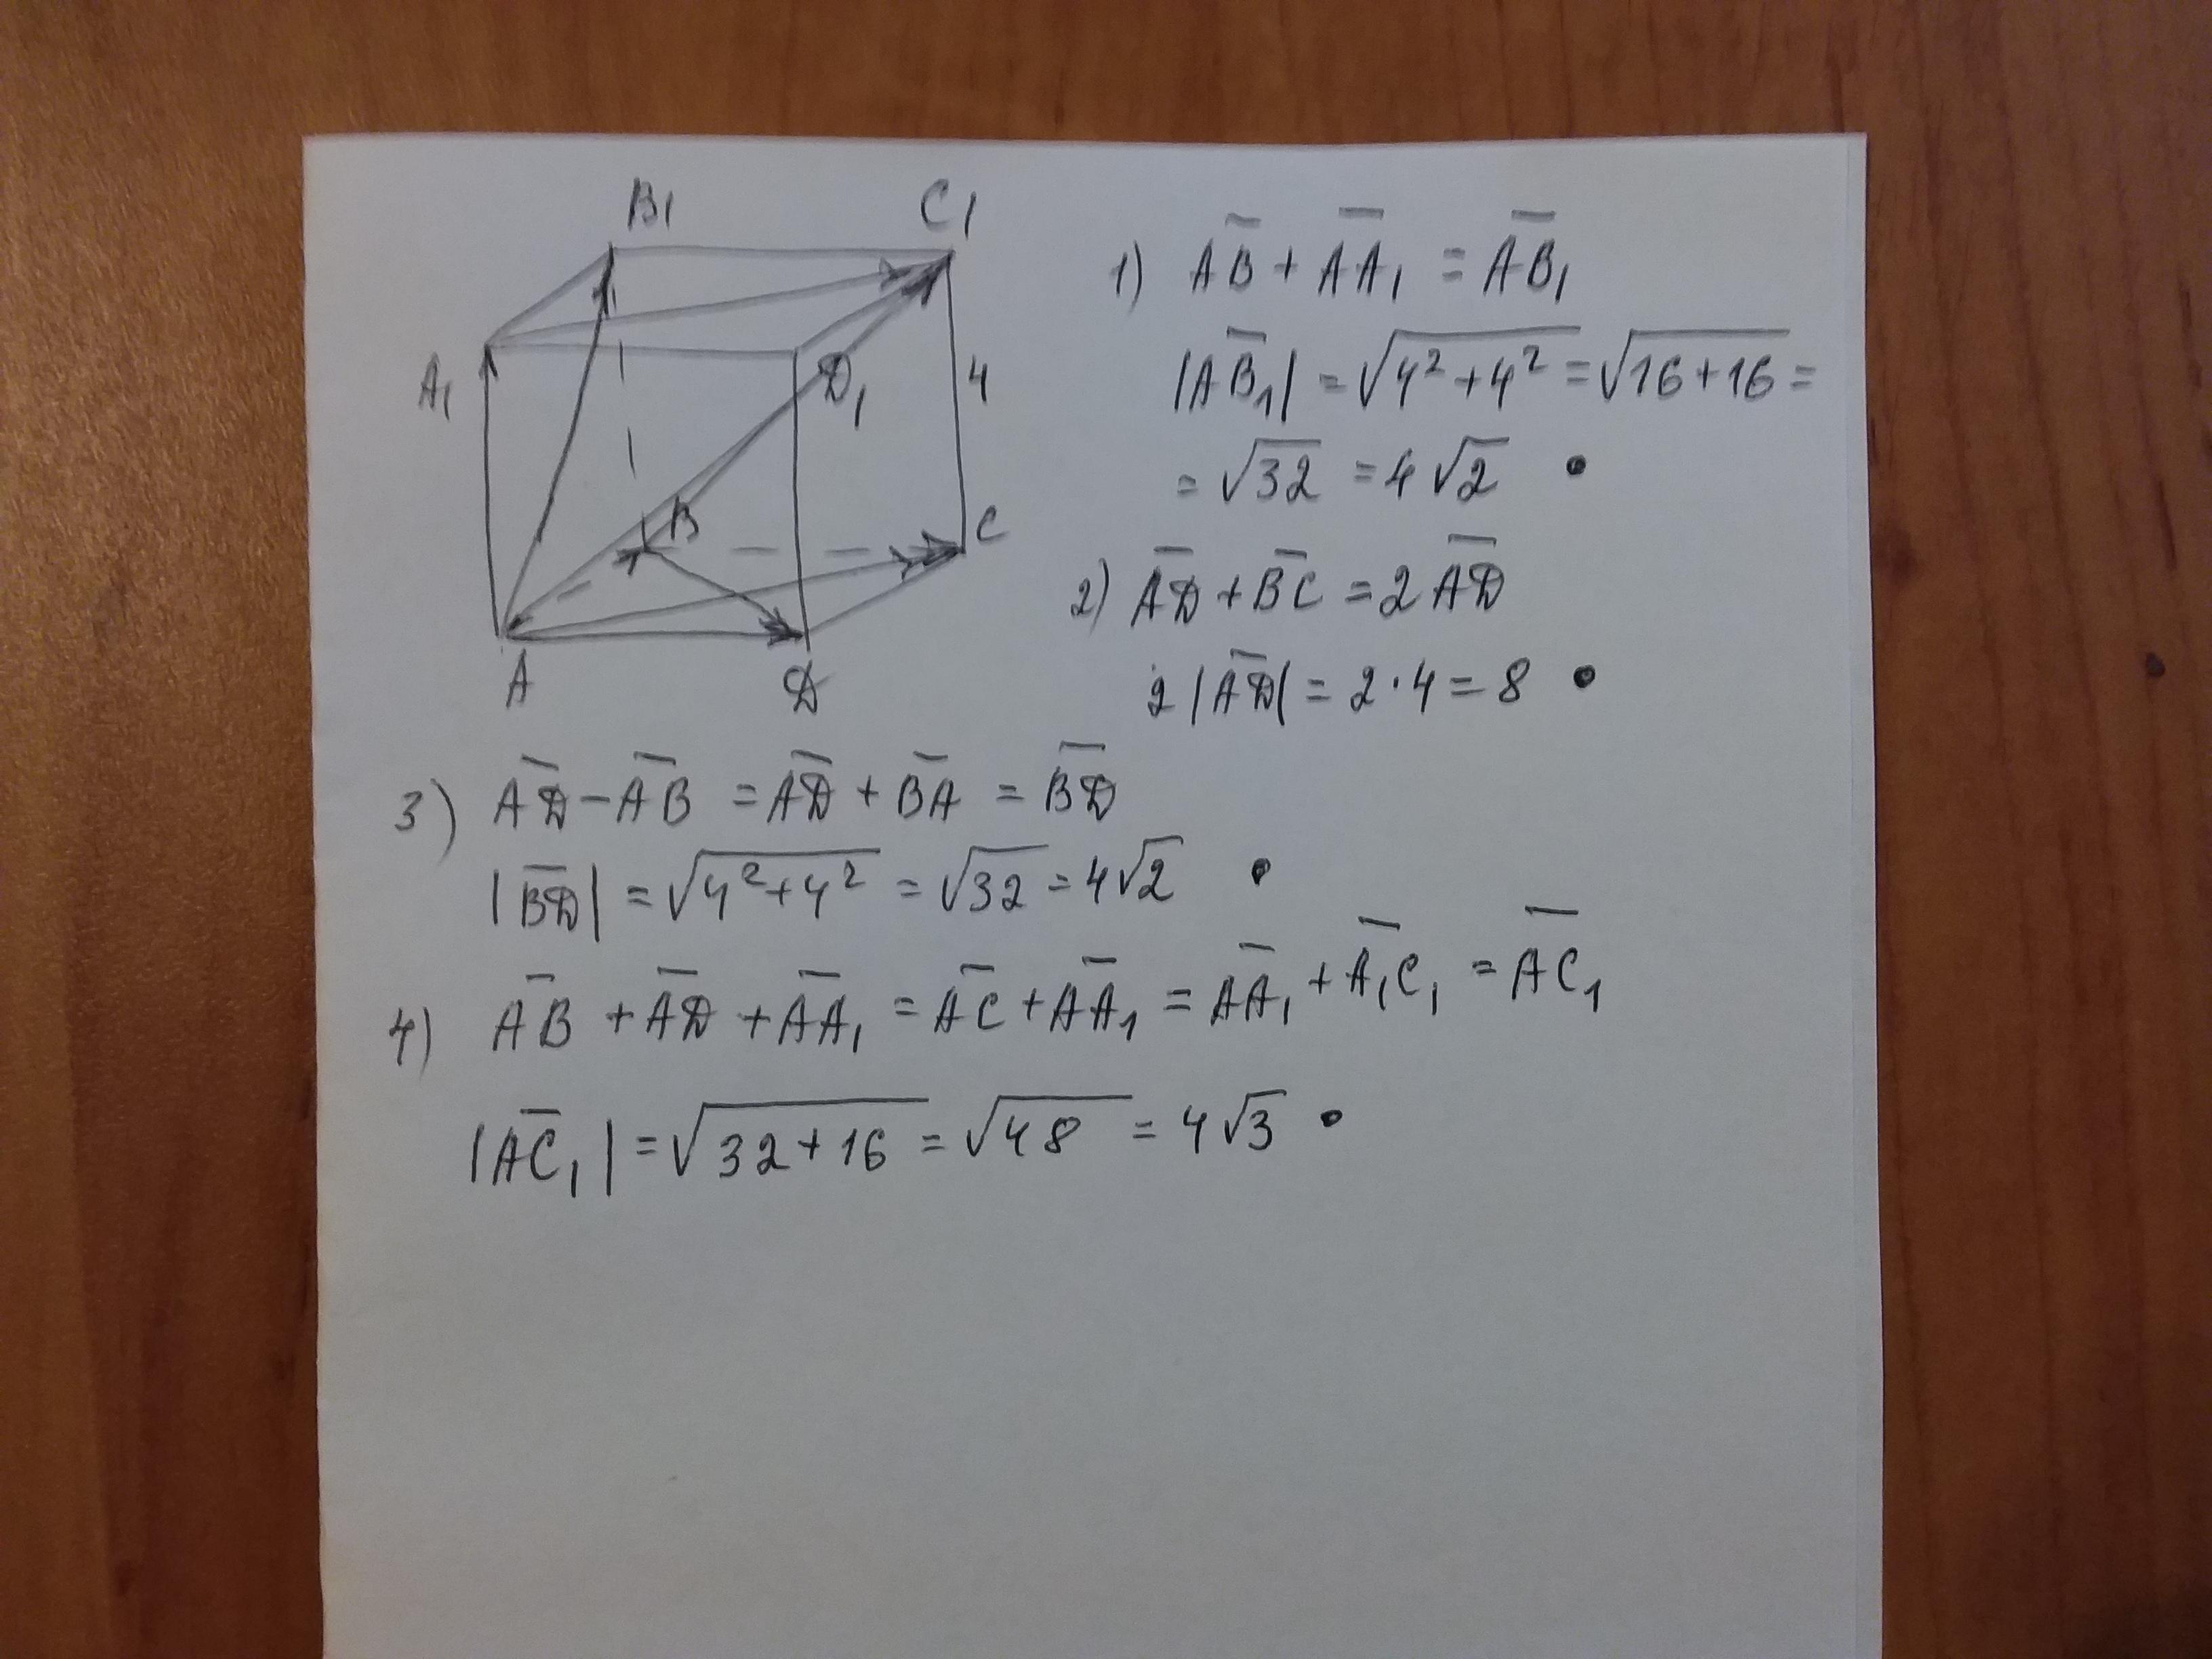 B₁ C₁
A₁ D₁ 4
B C
A D
1) A̅B̅ + A̅A̅₁ = A̅B̅₁
|A̅B̅₁| = √(4² + 4²) = √(16 + 16) =
= √32 = 4√2 •
2) A̅D̅ + B̅C̅ = 2A̅D̅
2|A̅D̅| = 2 · 4 = 8 •
3) A̅D̅ − A̅B̅ = A̅D̅ + B̅A̅ = B̅D̅
|B̅D̅| = √(4² + 4²) = √32 = 4√2 •
4) A̅B̅ + A̅D̅ + A̅A̅₁ = A̅C̅ + A̅A̅₁ = A̅A̅₁ + A̅₁C̅₁ = A̅C̅₁
|A̅C̅₁| = √(32 + 16) = √48 = 4√3 •